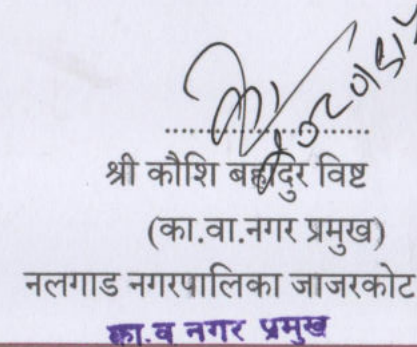 श्री कौशि बहादुर विष्ट
(का.वा.नगर प्रमुख)
नलगाड नगरपालिका जाजरकोट
का.व नगर प्रमुख